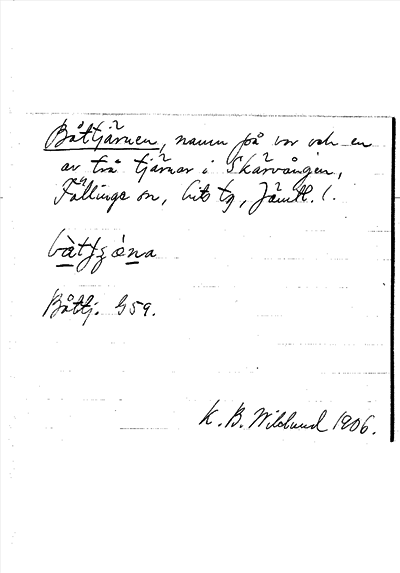 Båttjärnen, namn på var och en
av två tjärnar i Skärvången,
Föllinge sn, Lits tg, Jämtl. l.
Båttj. G59.
K. B. Wiklund 1906.